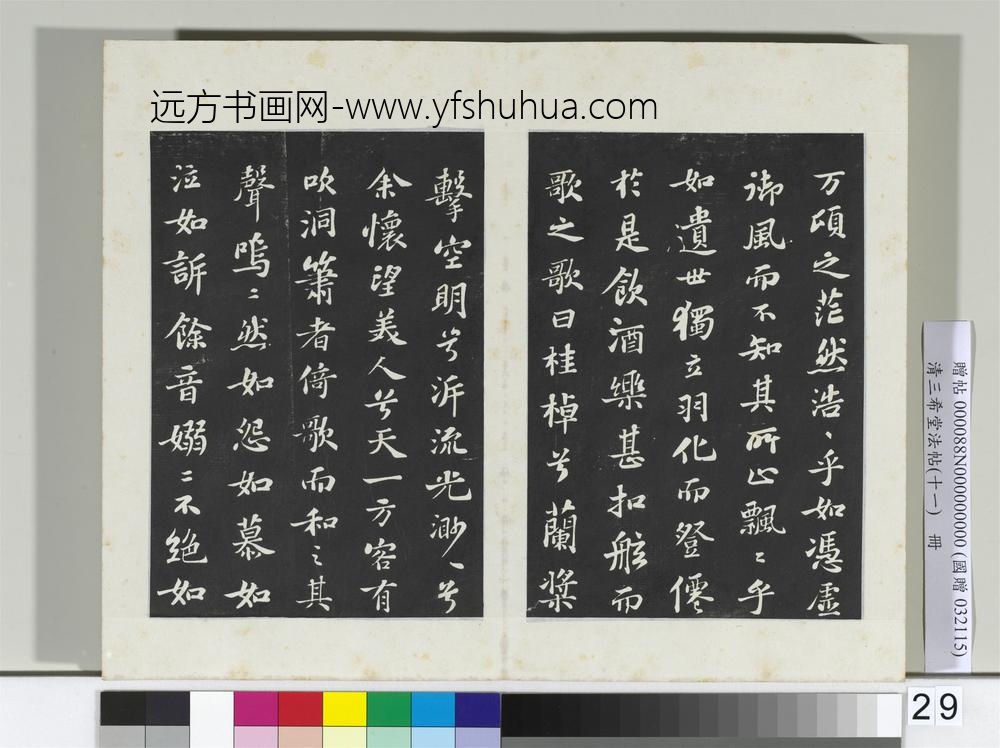 远方书画网-www.yfshuhua.com
万頃之茫然浩、乎如馮虛
御風而不知其所止飄〻乎
如遺世獨立羽化而登僊
於是飲酒樂甚扣舷而
歌之歌曰桂棹兮蘭槳
擊空明兮泝流光渺、兮
余懷望美人兮天一方客有
吹洞簫者倚歌而和之其
聲嗚〻然如怨如慕如
泣如訴餘音嫋〻不絕如
贈帖 000088N000000000 (國贈 032115)
清三希堂法帖(十一) 冊
29